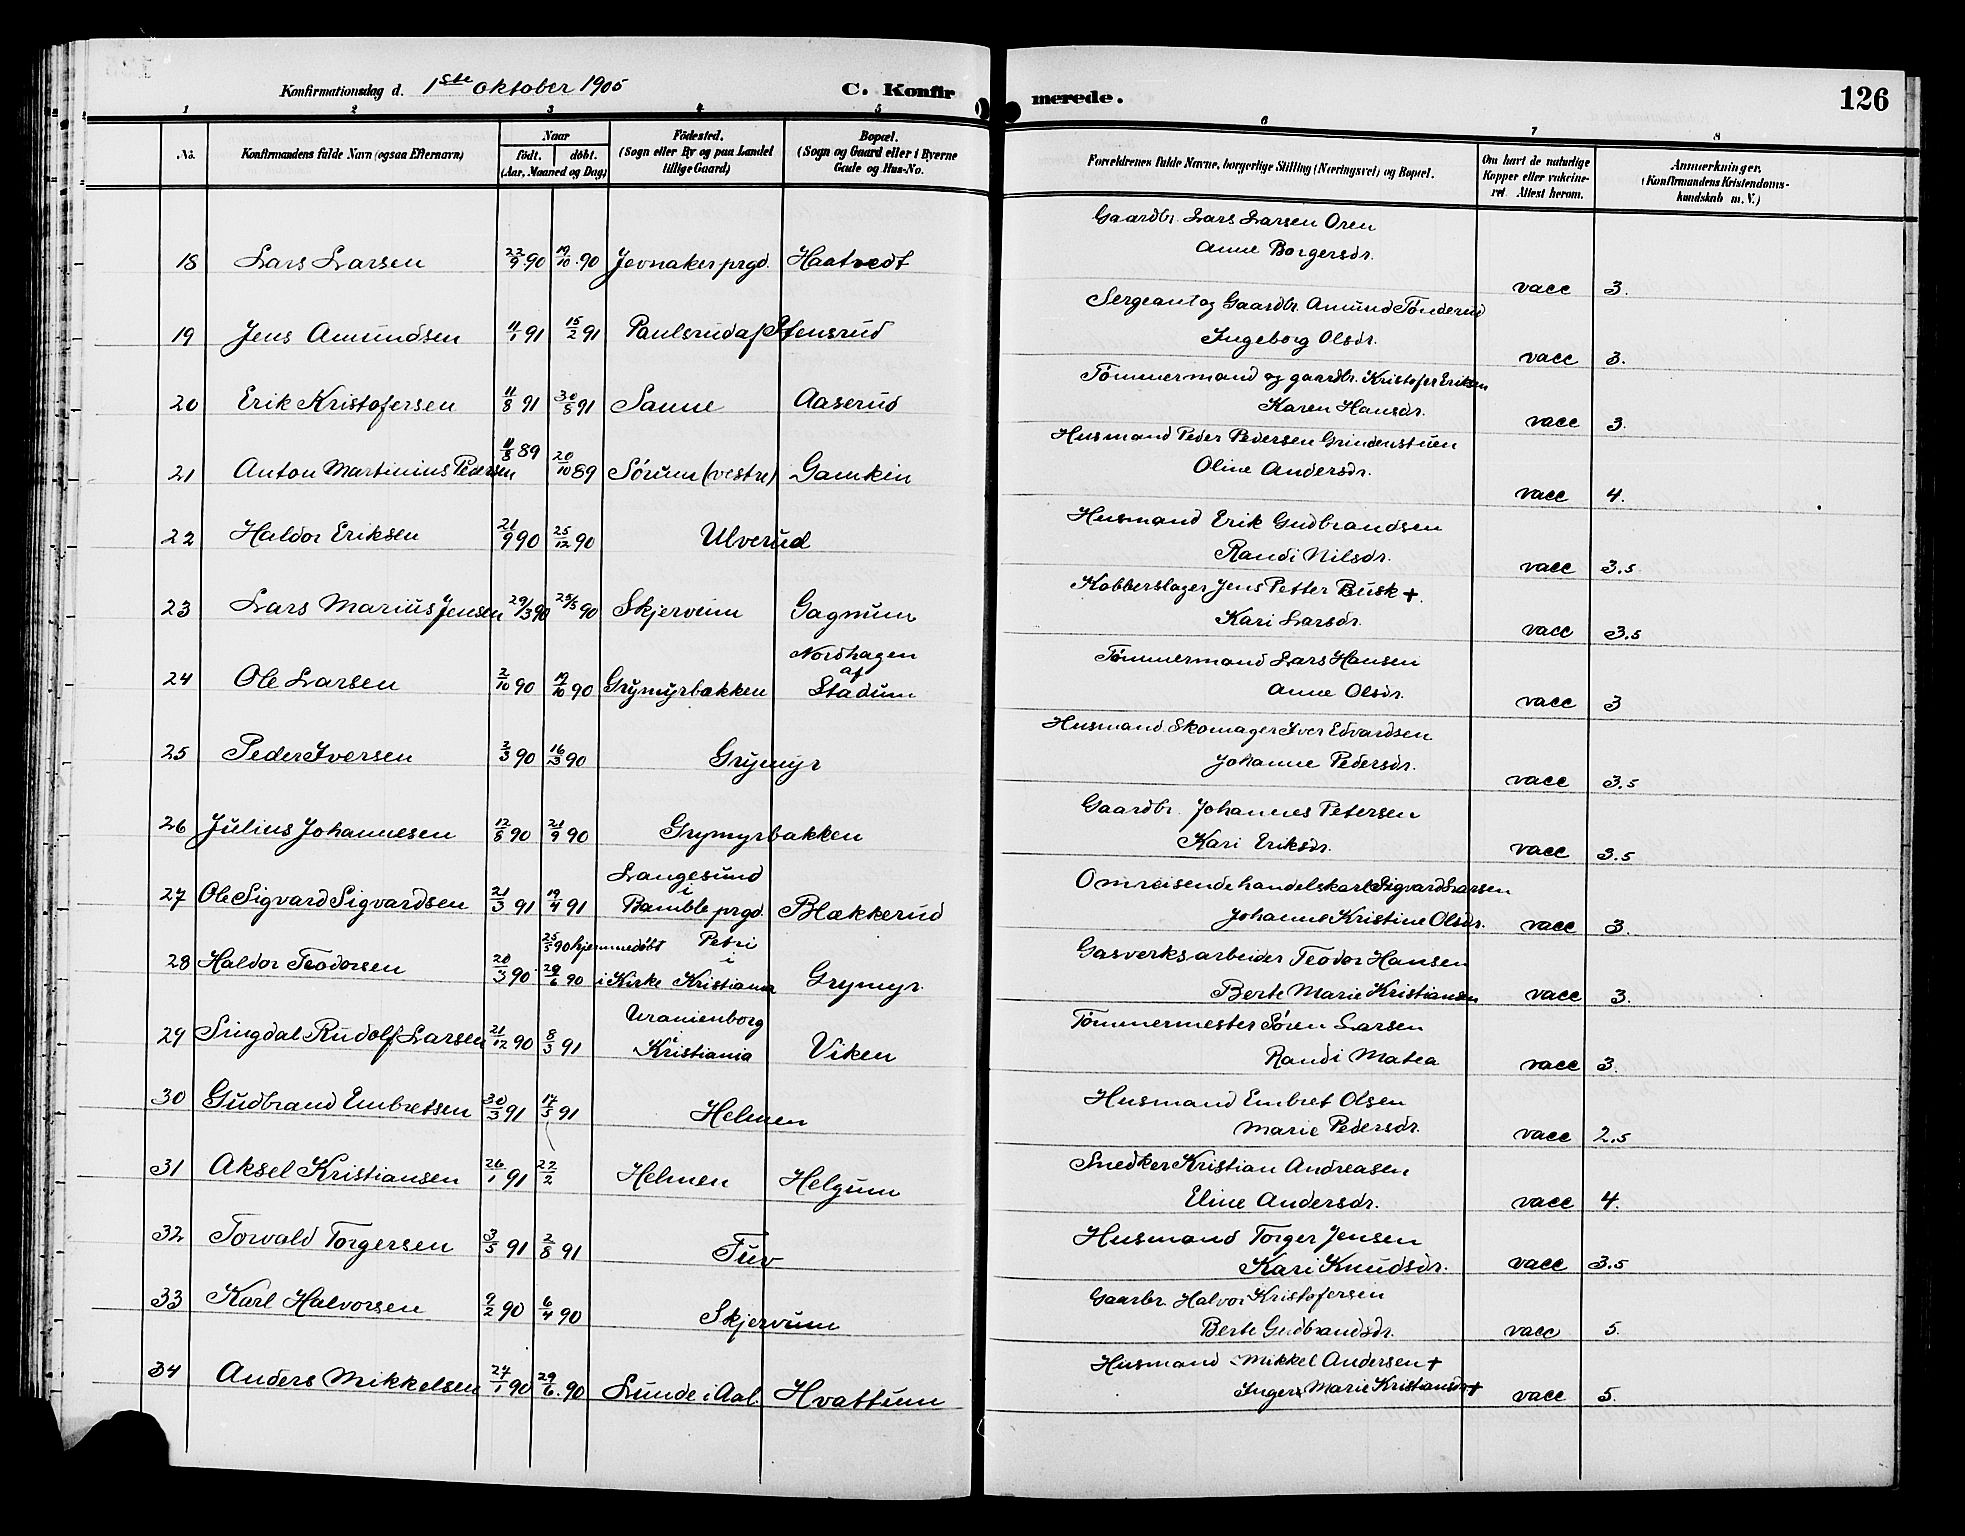 Konfirmationsdag d. 1ste oktober 1905
C. Konfirmerede.
126
1 2 3 4 5 6 7 8
No. Konfirmandens fulde Navn (ogsaa Efternavn) Naar født. døbt. (Aar, Maaned og Dag) Fødested. (Sogn eller By og paa Landet tillige Gaard) Bopæl. (Sogn og Gaard eller i Byerne Gade og Hus-No. Forældrenes fulde Navne, borgerlige Stilling (Næringsvei) og Bopæl. Om havt de naturlige Kopper eller vakcineret. Attest herom. Anmærkninger. (Konfirmandens Kristendomskundskab m. V.)
18 Lars Larsen 22/9 90 19/10 90 Jevnaker prgd. Haatvedt Gaardbr. Lars Larsen Oren
Anne Borgersdr. vacc 3.
19 Jens Amundsen 11/1 91 15/2 91 Paulsrud af Stensrud Sergeant og Gaardbr. Amund Tønderud
Ingeborg Olsdr. vacc 3.
20 Erik Kristofersen 11/8 91 30/8 91 Sanne Aaserud Tømmermand og gaardbr. Kristofer Eriksen
Karen Hansdr. vacc 3.
21 Anton Martinius Pedersen 11/8 89 20/10 89 Sørum (vestre) Gamkin Husmand Peder Pedersen Grindenstuen
Oline Andersdr. vacc 4.
22 Haldor Eriksen 21/9 90 25/12 90 Ulverud Husmand Erik Gudbrandsen
Randi Nilsdr. vacc 3.5
23 Lars Marius Jensen 29/3 90 25/5 90 Skjervum Gagnum Kobberslager Jens Petter Busk +.
Kari Larsdr. vacc 3.5
24 Ole Larsen 2/10 90 19/10 90 Grymyrbakken Nordhagen af Stadum Tømmermand Lars Hansen
Anne Olsdr. vacc 3
25 Peder Iversen 2/3 90 16/3 90 Grymyr Husmand Skomager Iver Edvardsen
Johanne Pedersdr. vacc 3.5
26 Julius Johannesen 12/8 90 21/9 90 Grymyrbakken Gaardbr. Johannes Petersen
Kari Eriksdr. vacc 3.5
27 Ole Sigvard Sigvardsen 21/3 91 19/4 91 Langesund i Bamble prgd. Blækkerud Omreisende handelskarl Sigvard Larsen
Johanne Kristine Olsdr. vacc 3.
28 Haldor Teodorsen 20/3 90 25/5 90 hjemmedøbt 29/6 90 i Kirke Petri i Kristiania Grymyr Gasverksarbeider Teodor Hansen
Berte Marie Kristiansen vacc 3.
29 Singdal Rudolf Larsen 21/12 90 8/3 91 Uranienborg i Kristiania Viken Tømmermester Søren Larsen
Randi Matea vacc 3.
30 Gudbrand Embretsen 30/3 91 17/5 91 Helmen Husmand Embret Olsen
Marie Pedersdr. vacc 2.5
31 Aksel Kristiansen 26/1 91 22/2 Helmen Helgum Snedker Kristian Andreasen
Eline Andersdr. vacc 4.
32 Torvald Torgersen 3/5 91 2/8 91 Tuv Husmand Torger Jensen
Kari Knudsdr. vacc 3.5
33 Karl Halvorsen 9/2 90 6/4 90 Skjervum Gaarbr. Halvor Kristofersen
Berte Gudbrandsdr. vacc 5.
34 Anders Mikkelsen 27/1 90 29/6 90 Lunde i Aal. Hvattum Husmand Mikkel Andersen +
Inger Marie Kristiansdr + vacc 5.